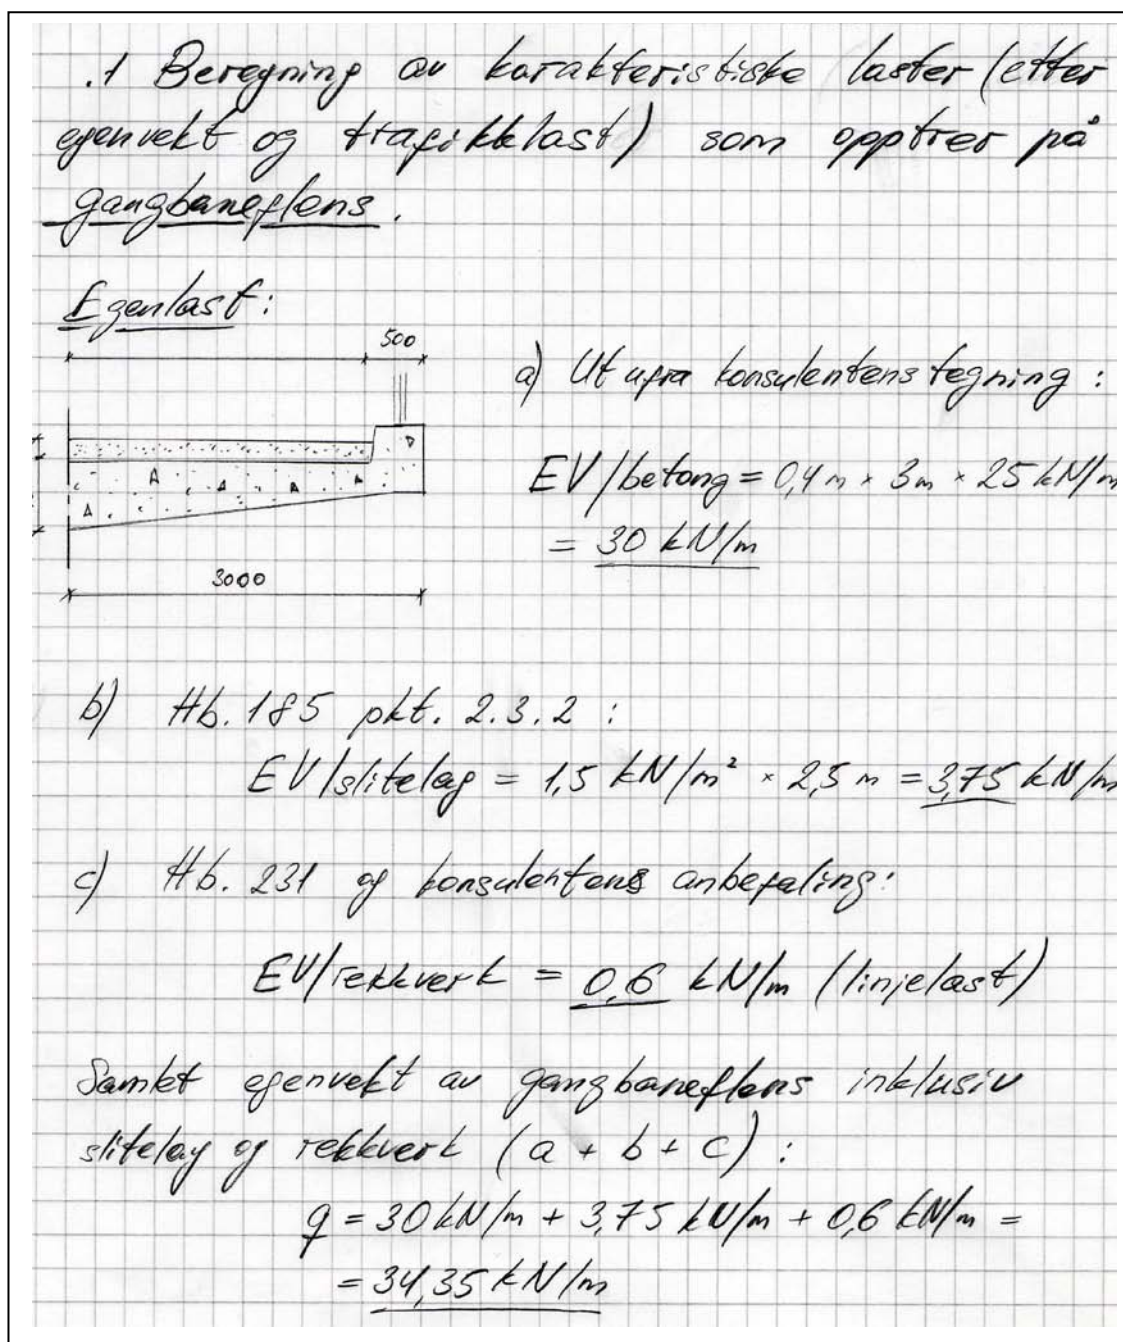 .1 Beregning av karakteristiske laster (etter
egenvekt og trafikklast) som opptrer på
gangbaneflens.
Egenlast:
500
a) Ut ifra konsulentens tegning:
EV/betong = 0,4 m × 3m × 25 kN/m
= 30 kN/m
3000
b) Hb. 185 pkt. 2.3.2 :
EV/slitelag = 1,5 kN/m² × 2,5 m = 3,75 kN/m
c) Hb. 231 og konsulentens anbefaling:
EV/rekkverk = 0,6 kN/m (linjelast)
Samlet egenvekt av gangbaneflens inklusiv
slitelag og rekkverk (a + b + c) :
q = 30 kN/m + 3,75 kN/m + 0,6 kN/m =
= 34,35 kN/m